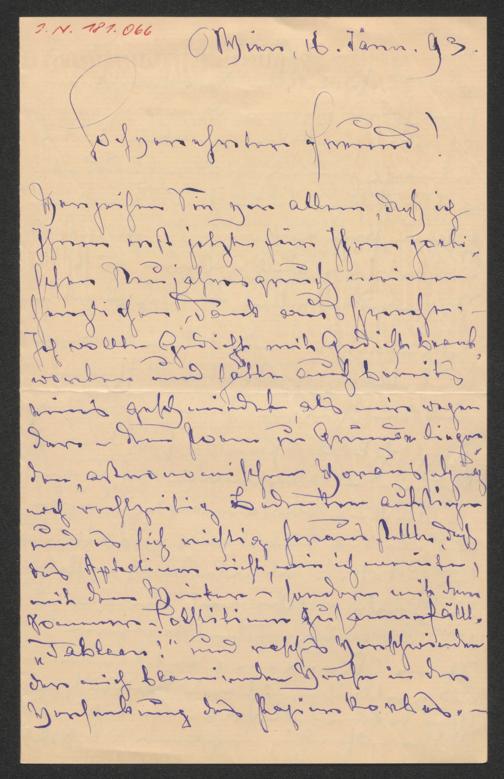 I. N. 181.066
Wien, 16. Jänn. 93.
Hochverehrter Freund!
Verzeihen Sie vor allem, daß ich
Ihnen erst jetzt für Ihren poeti-
schen Neujahrsgruß meinen
herzlichen Dank ausspreche. –
Ich wollte Gedicht mit Gedicht beant-
worten und hatte auch bereits
eines geschmiedet, als mir wegen
der dem Poem zu Grunde liegen-
den, astronomischen Voraussetzung
noch rechtzeitig Bedenken aufstiegen
und es sich richtig herausstellte, daß
das Aphelium nicht, wie ich meinte,
mit dem Winter – sondern mit dem
Sommer-Solstitium zusammenfällt.
„Tableau!" und rasches Verschwinden
der mich blamierenden Verse in der
Versenkung des Papierkorbes. –